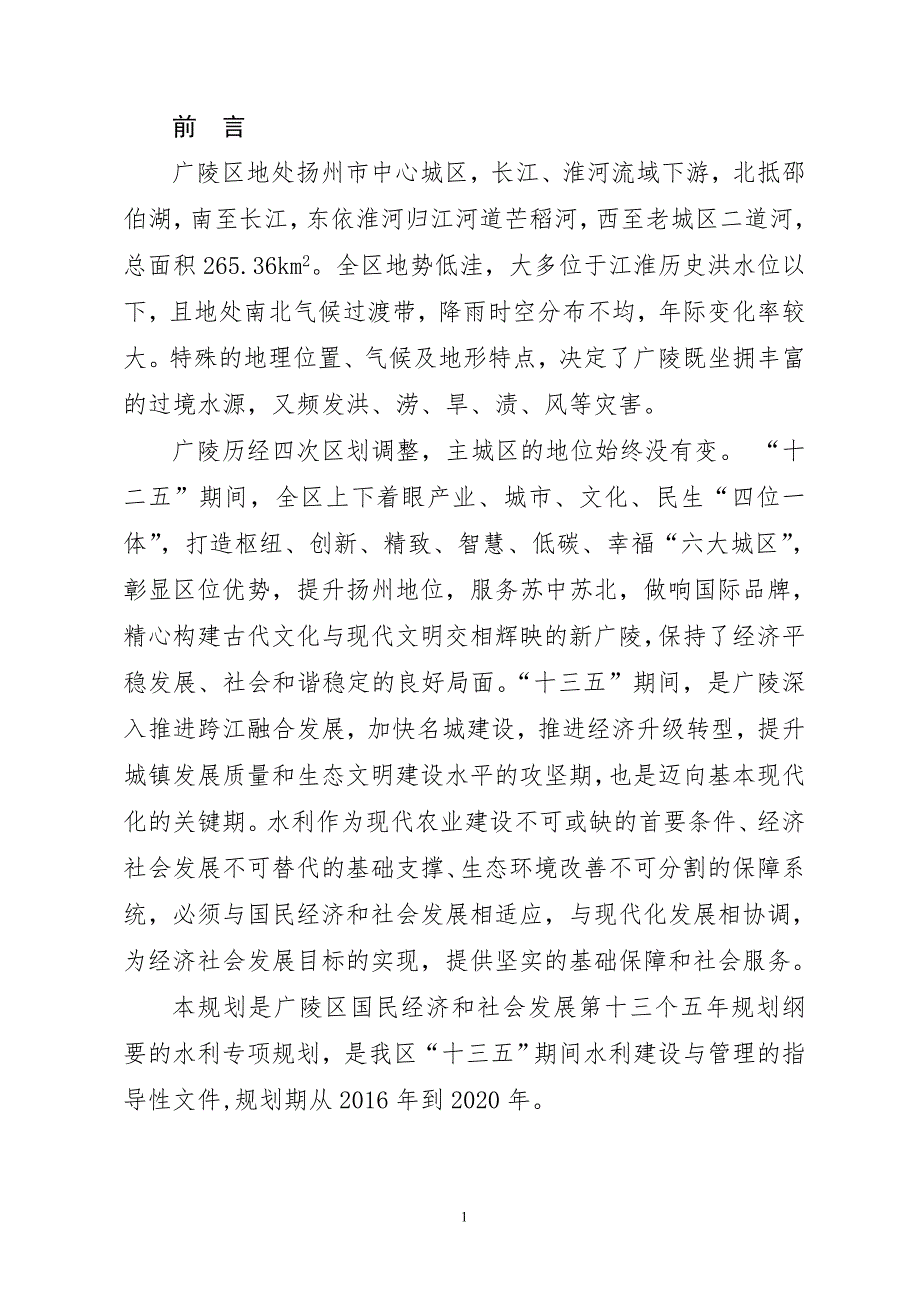 前 言
广陵区地处扬州市中心城区，长江、淮河流域下游，北抵邵
伯湖，南至长江，东依淮河归江河道芒稻河，西至老城区二道河，
总面积 265.36km²。全区地势低洼，大多位于江淮历史洪水位以
下，且地处南北气候过渡带，降雨时空分布不均，年际变化率较
大。特殊的地理位置、气候及地形特点，决定了广陵既坐拥丰富
的过境水源，又频发洪、涝、旱、渍、风等灾害。
广陵历经四次区划调整，主城区的地位始终没有变。 “十
二五”期间，全区上下着眼产业、城市、文化、民生“四位一
体”，打造枢纽、创新、精致、智慧、低碳、幸福“六大城区”，
彰显区位优势，提升扬州地位，服务苏中苏北，做响国际品牌，
精心构建古代文化与现代文明交相辉映的新广陵，保持了经济平
稳发展、社会和谐稳定的良好局面。“十三五”期间，是广陵深
入推进跨江融合发展，加快名城建设，推进经济升级转型，提升
城镇发展质量和生态文明建设水平的攻坚期，也是迈向基本现代
化的关键期。水利作为现代农业建设不可或缺的首要条件、经济
社会发展不可替代的基础支撑、生态环境改善不可分割的保障系
统，必须与国民经济和社会发展相适应，与现代化发展相协调，
为经济社会发展目标的实现，提供坚实的基础保障和社会服务。
本规划是广陵区国民经济和社会发展第十三个五年规划纲
要的水利专项规划，是我区“十三五”期间水利建设与管理的指
导性文件,规划期从 2016 年到 2020 年。
1